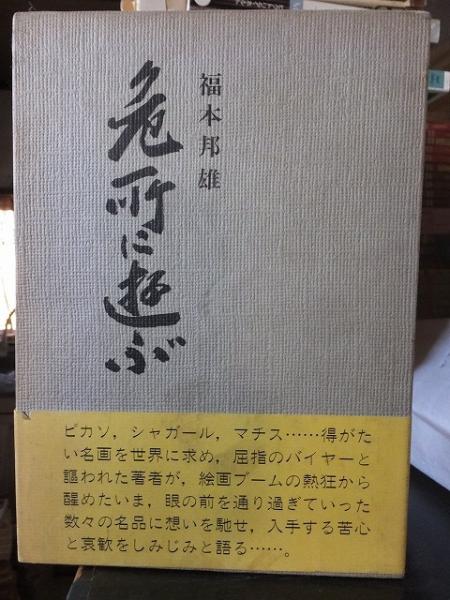 福本邦雄
危所に遊ぶ
ピカソ，シャガール，マチス……得がた
い名画を世界に求め，屈指のバイヤーと
謳われた著者が，絵画ブームの熱狂から
醒めたいま，眼の前を通り過ぎていった
数々の名品に想いを馳せ，入手する苦心
と哀歓をしみじみと語る……。